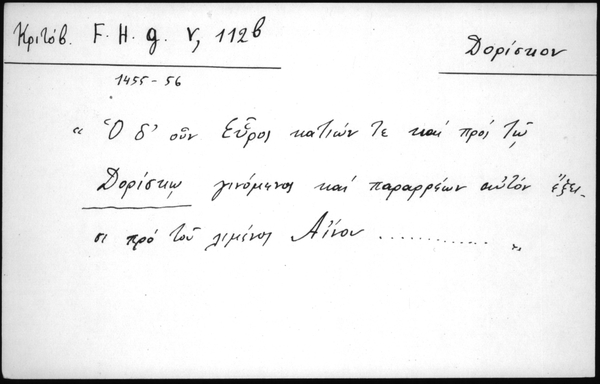 Κριτόβ. F. H. g. V, 112b
Δορίσκον
1455-56
“Ὁ δ' οὖν Εὗρος κατιών τε καί πρός τῷ
Δορίσκῳ γινόμενος καί παραρρέων αὐτόν ἔξει-
σι πρό τοῦ λιμένος Αἴνου ............ „